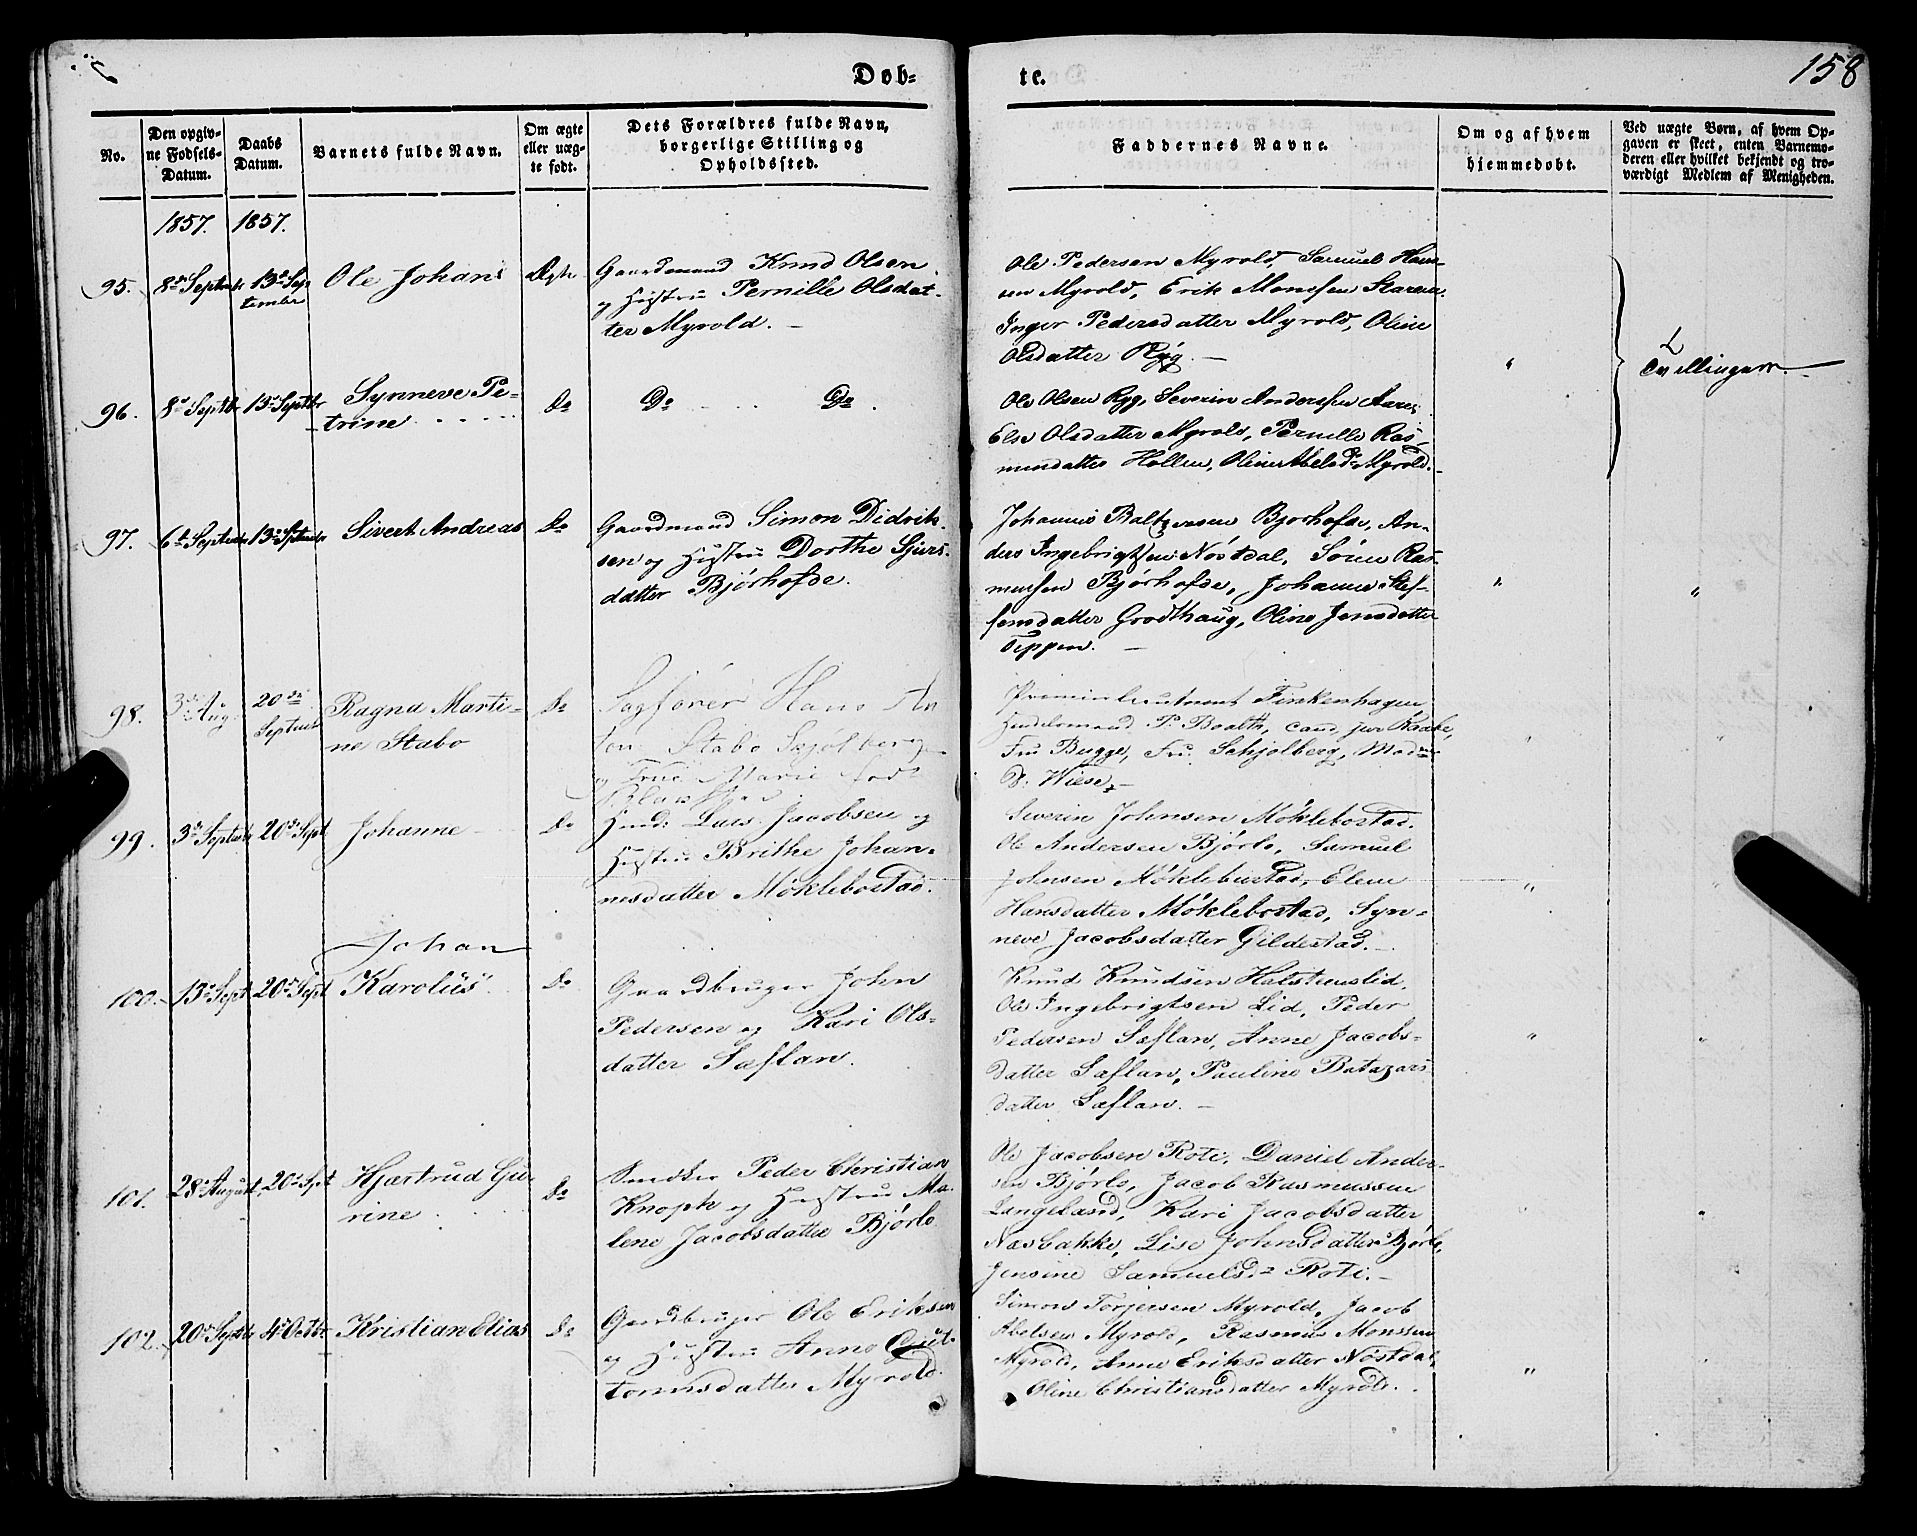 Døb-
te.
158
No.
Den opgiv-
ne Fødsels-
Datum.
Daabs
Datum.
Barnets fulde Navn.
Om ægte
eller uæg-
te født.
Dets Forældres fulde Navn,
borgerlige Stilling og
Opholdssted.
Faddernes Navne.
Om og af hvem
hjemmedøbt.
Ved uægte Børn, af hvem Op-
gaven er skeet, enten Barnemo-
deren eller hvilket bekjendt og tro-
værdigt Medlem af Menigheden.
1857. 1857.
95.
8de Septembr
13de Sep
tember
Ole Johans
Ægte
Gaardmand Knud Olsen
og Hustru Pernille Olsdat-
ter Myrold. -
Ole Pedersen Myrold, Samuel Han-
sen Myrold, Erik Monssen
Inger Pedersdatter Myrold, Oline
Olsdatter Ryg. -
"
Tvillinger.
96.
8de Septbr
13de Septbr
Synneve Pe-
trine
Do
Do Do.
Ole Olsen Ryg, Severin Anderssen Aare,
Else Olsdatter Myrold, Pernille Ras-
musdatter Hollen, Oline Abelsdr Myrold.
97.
6te September
13de September
Sivert Andreas
Do
Gaardmand Simon Didrik-
sen og Hustru Dorthe Sjurs-
datter Bjørhofde.
Johannes Baltzersen Bjørhofde, An-
ders Ingebrigtsen Nøstdal, Søren Ras-
mussen Bjørhofde, Johanne Stef-
fensdatter Grodthaug, Oline Jensdatter
Teppen. -
"
"
98.
3die Aug.
20de
Septembr
Ragna Marti-
ne Stabo
Do
Sagfører Hans An
ton Stabo Skjolberg
og Frue Marie født
Premierlieutenant Finkenhagen
Handelsmand P. Booth, cand. jur Kaabe,
Fru Bugge, Fru Schjolberg, Madme
D. Wiese. -
"
"
99.
3die Septembr
20de Sept
Johanne
Do
Huusmd: Lars Jacobsen og
Hustru Brithe Johan-
nesdatter Møklebostad.
Severin Johnsen Møklebostad.
Ole Andersen Bjørlo, Samuel
Johnsen Møklebustad, Elene
Hansdatter Møklebostad, Syn-
neve Jacobsdatter Gildestad. -
"
"
Johan
100.
13de Sept
20de Sept
Karolius
Do
Gaardbruger John
Pedersen og Kari Ols-
datter Sæflan.
Knud Knudsen Holstenslid.
Ole Ingebrigtsen Lid, Peder
Pedersen Sæflan, Anne Jacobs-
datter Sæflan, Pauline Batazars
datter Sæflan. -
"
"
101.
28de August
20de Sept
Hjertrud Gu-
rine
Do
Snedker Peder Christian
Knoph og Hustru Ma-
lene Jacobsdatter Bjørlo
Ole Jacobsen Roti, Daniel Ander-
sen Bjørlo, Jacob Rasmussen
Langeland, Kari Jacobsdatter
Næsbakke, Lise Johnsdatter Bjørlo,
Jensine Samuelsdr Roti. -
"
102.
20de Septbr
4de Octbr
Kristian Elias
Do
Gaardbruger Ole Eriksen
og Hustru Anne Gut-
tormsdatter Myrold.
Simon Torjersen Myrold, Jacob
Abelsen Myrold, Rasmus Monssen
Myrold, Anne Eriksdatter Nøstdal,
Oline Christiansdatter Myrold.
"
"